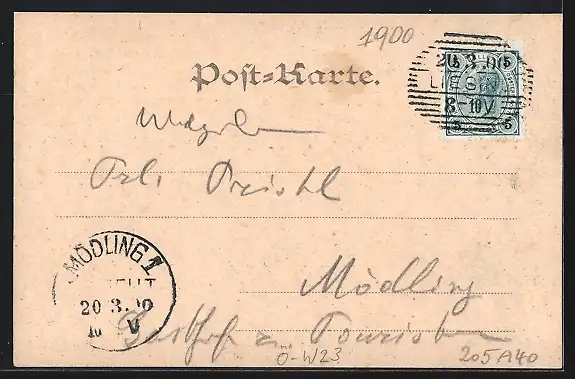 1900
Post-Karte.
20 3.00
8-10V
5 5
5
Frl. Preistl
Mödling
MÖDLING 1
20 3.00
10 V
Gasthof z. Touristen
Ö-W23
205A40